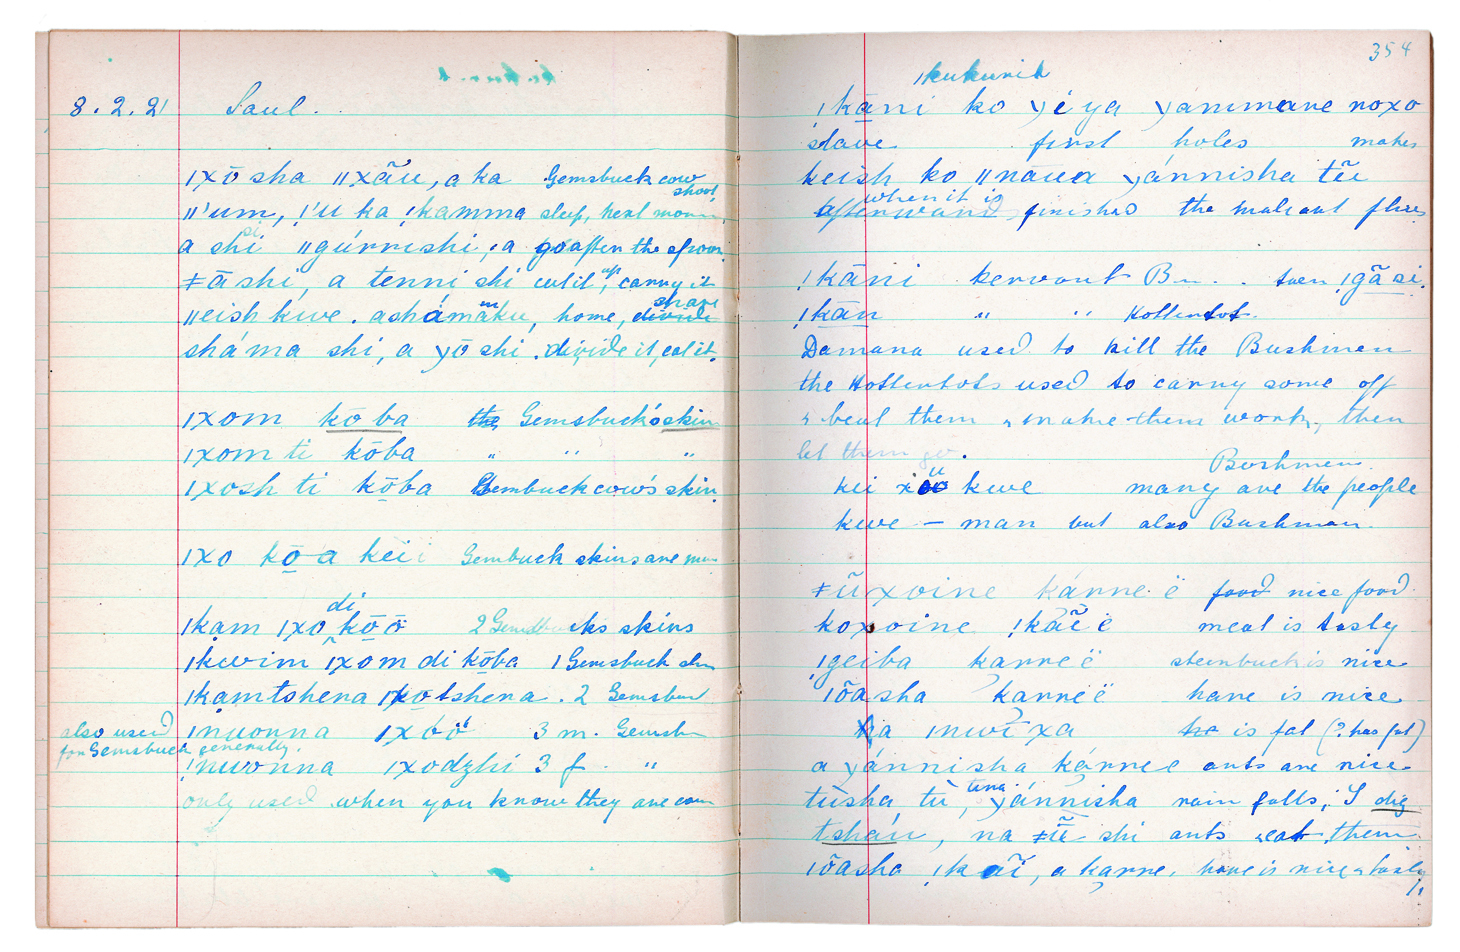 8.2.21 Saul.
ǀxōsha ǁxãu, a ka Gemsbuck cow
shoot,
ǁ'um, ǃ'u ka ǃkamma sleep, next morn
a shi ǁgúrreshi, a go after the spoor,
si
ǂāshi, a tenni shi cut it up, carry it
ǁeish kwe. ashámmāku, home, divide
share
sháma shi, a yōshi. divide it, eat it.
ǀxom kōba the Gemsbuck's skin
ǀxom ti kōba " " "
ǀxosh ti kōba Gembuck cow's skin
ǀxo kō a keii Gembuck skins are
di
ǀkam ǀxo kōō 2 Gemsbucks skins
ǀkwim ǀxom di kōba 1 Gemsbuck
ǀkamtshena ǀxotshena. 2 Gemsbuck
also used for Gemsbuck generally.
ǀnuonna ǀxóö 3 m. Gemsb
ǃnwonna ǀxodzhi 3 f. "
only used when you know they are cow
354
ǀkukurib
ǃkāni ko yé ya yammane noxo
slave first holes makes
keish ko ǁnāua yánnisha tẽe
when it is
afterwards finished the male ant flies
ǃkāni servant B... ǃgãsi.
ǃkān " " Hottentot.
Damara used to kill the Bushmen
the Hottentots used to carry some off
& beat them & make them work, then
let them go.
Bushmen.
kei kwe many are the people
kwe — man but also Bushman.
ǂũxoine kárne ë food nice food.
koxoine ǃkãĩ ë meat is tasty
ǃgeiba karneë steenbuck is nice
ǀõasha karneë hare is nice
ha ǀnwixa he is fat (? has fat)
a yánnisha kárneë ants are nice
tùsha tù, tina yánnisha rain falls, I dig
tsháu, na ǂũ shi ants & eat them
ǀõasha ǃkãĩ, a karne, hare is nice & tasty